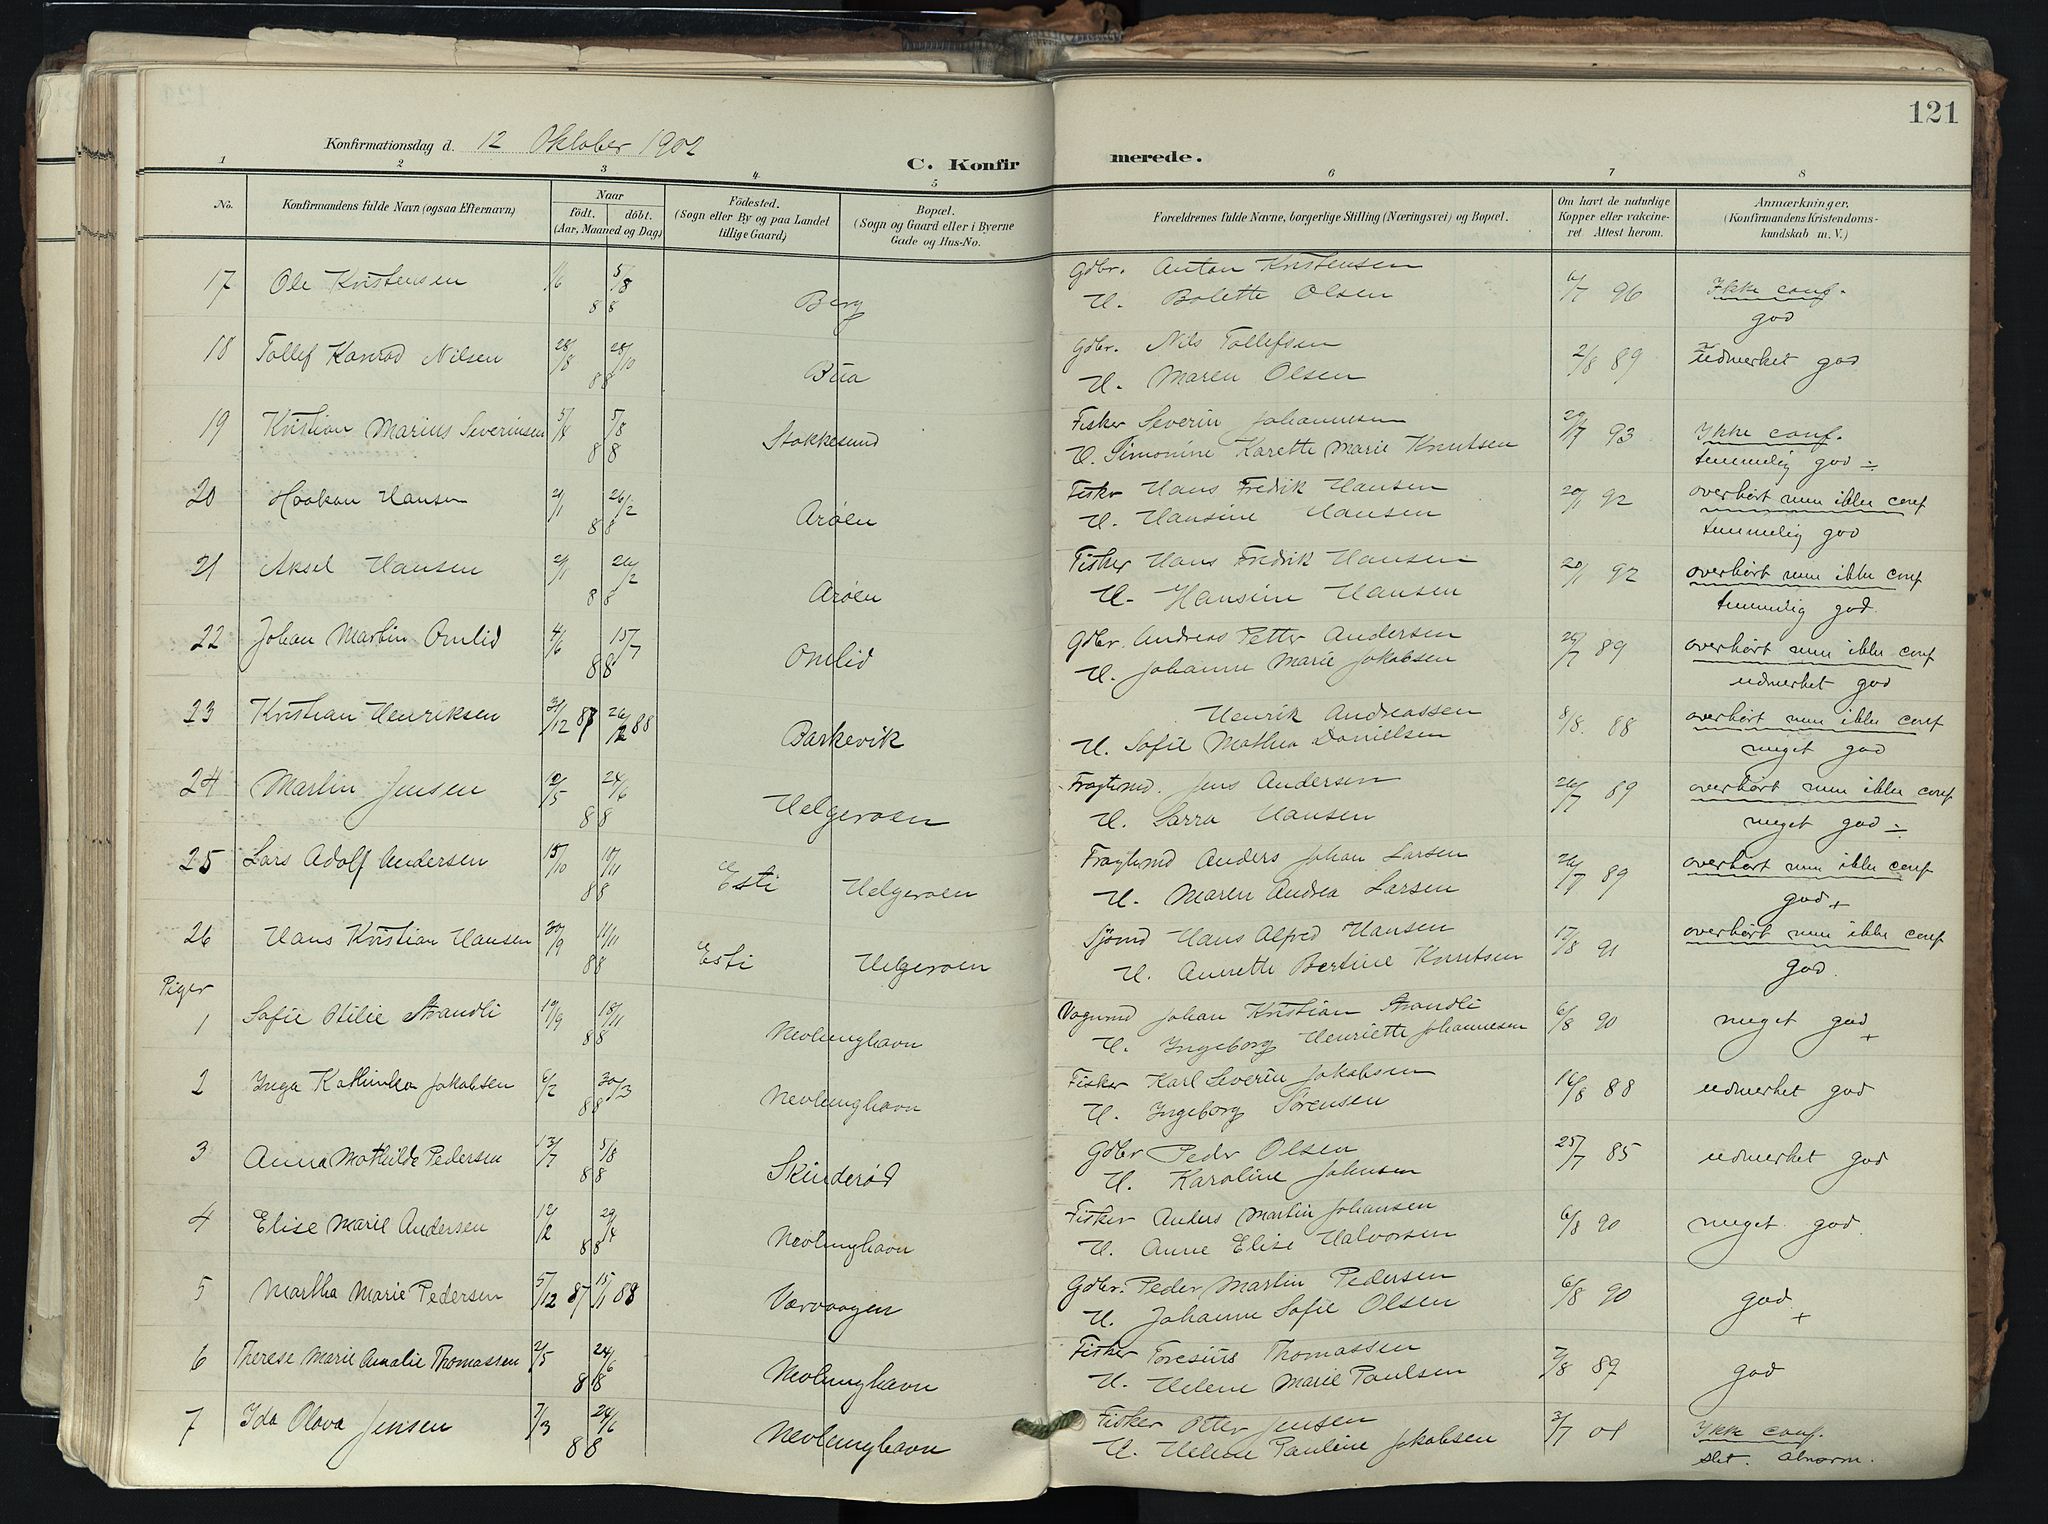 121
Konfirmationsdag d. 12 Oktober 1902
C. Konfirmerede.
1 2 3 4 5 6 7 8
No.
Konfirmandens fulde Navn (ogsaa Efternavn)
Naar
födt. döbt.
(Aar, Maaned og Dag)
Födested.
(Sogn eller By og paa Landet
tillige Gaard)
Bopæl.
(Sogn og Gaard eller i Byerne
Gade og Hus-No.
Forældrenes fulde Navne, borgerlige Stilling (Næringsvei) og Bopæl.
Om havt de naturlige
Kopper eller vakcine-
ret Attest herom.
Anmærkninger.
(Konfirmandens Kristendoms-
kundskab m. V.)
17 Ole Kristensen 1/6 5/8 88 Berg Gdbr. Anton Kristensen 6/7 96 Ikke conf.
H. Bolette Olsen god
18 Tollef Konrad Nilsen 28/8 28/10 88 Bua Gdbr. Nils Tollefsen 2/8 89 udmerket god
H. Maren Olsen
19 Kristian Marius Severinsen 5/4 5/8 88 Stokkesund Fisker Severin Johannesen 29/7 93 Ikke conf.
H. Simonine Karette Marie Knutsen temmelig god ÷
20 Haakon Hansen 21/1 26/2 88 Arøen Fisker Hans Fredrik Hansen 20/1 92 overhørt men ikke conf
H. Hansine Hansen temmelig god
21 Aksel Hansen 21/1 26/2 88 Arøen Fisker Hans Fredrik Hansen 20/1 92 overhørt men ikke conf
H. Hansine Hansen temmelig god.
22 Johan Martin Omlid 4/6 15/7 88 Omlid Gdbr. Andreas Petter Andersen 25/7 89 overhørt men ikke conf
H. Johanne Marie Jakobsen udmerket god
23 Kristian Henriksen 31/12 87 26/2 88 Barkevik Henrik Andreassen 8/8. 88 overhørt men ikke conf
H. Sofie Mathea Danielsen meget god
24 Martin Jensen 10/5 24/6 88 Helgeroen Fragtmd. Jens Andersen 26/7 89 overhørt men ikke conf
H. Sarra Hansen meget god ÷
25 Lars Adolf Andersen 15/10 18/11 88 Esti Helgeroen Fragtmd Anders Johan Larsen 26/7 89 overhørt men ikke conf
H. Maren Andrea Larsen god +
26 Hans Kristian Hansen 30/9 11/11 88 Esti Helgeroen Sjømd Hans Alfred Hansen 17/8 91 overhørt men ikke conf
H. Annette Bertine Knutsen god.
Piger
1 Sofie Otilie Strandli 19/9 18/11 88 Nevlunghavn Vognmd Johan Kristian Strandli 6/8 90 meget god +
H. Ingeborg Henriette Johannesen
2 Inga Kathinka Jakobsen 6/2 30/3 88 Nevlunghavn Fisker Karl Severin Jakobsen 16/8 88 udmerket god
H. Ingeborg Sørensen
3 Anna Mathilde Pedersen 13/7 5/8 88 Skinderød Gdbr Peder Olsen 25/7 85 udmerket god
H. Karoline Johnsen
4 Elise Marie Andersen 12/2 29/4 88 Nevlunghavn Fisker Anders Martin Johansen 6/8 90 meget god.
H. Anne Elise Halvorsen
5 Martha Marie Pedersen 5/12 87 15/1 88 Værvaagen Gdbr. Peder Martin Pedersen 6/8 90 god +
H. Johanne Sofie Olsen
6 Therese Marie Amalie Thomassen 2/5 24/6 88 Nevlunghavn Fisker Toresius Thomassen 7/8 89 god
H. Helene Marie Paulsen
7 Ida Olava Jensen 7/3 24/6 88 Nevlunghavn Fisker Otter Jensen 3/7 01 Ikke conf.
H. Helene Pauline Jakobsen slet. abnorm.